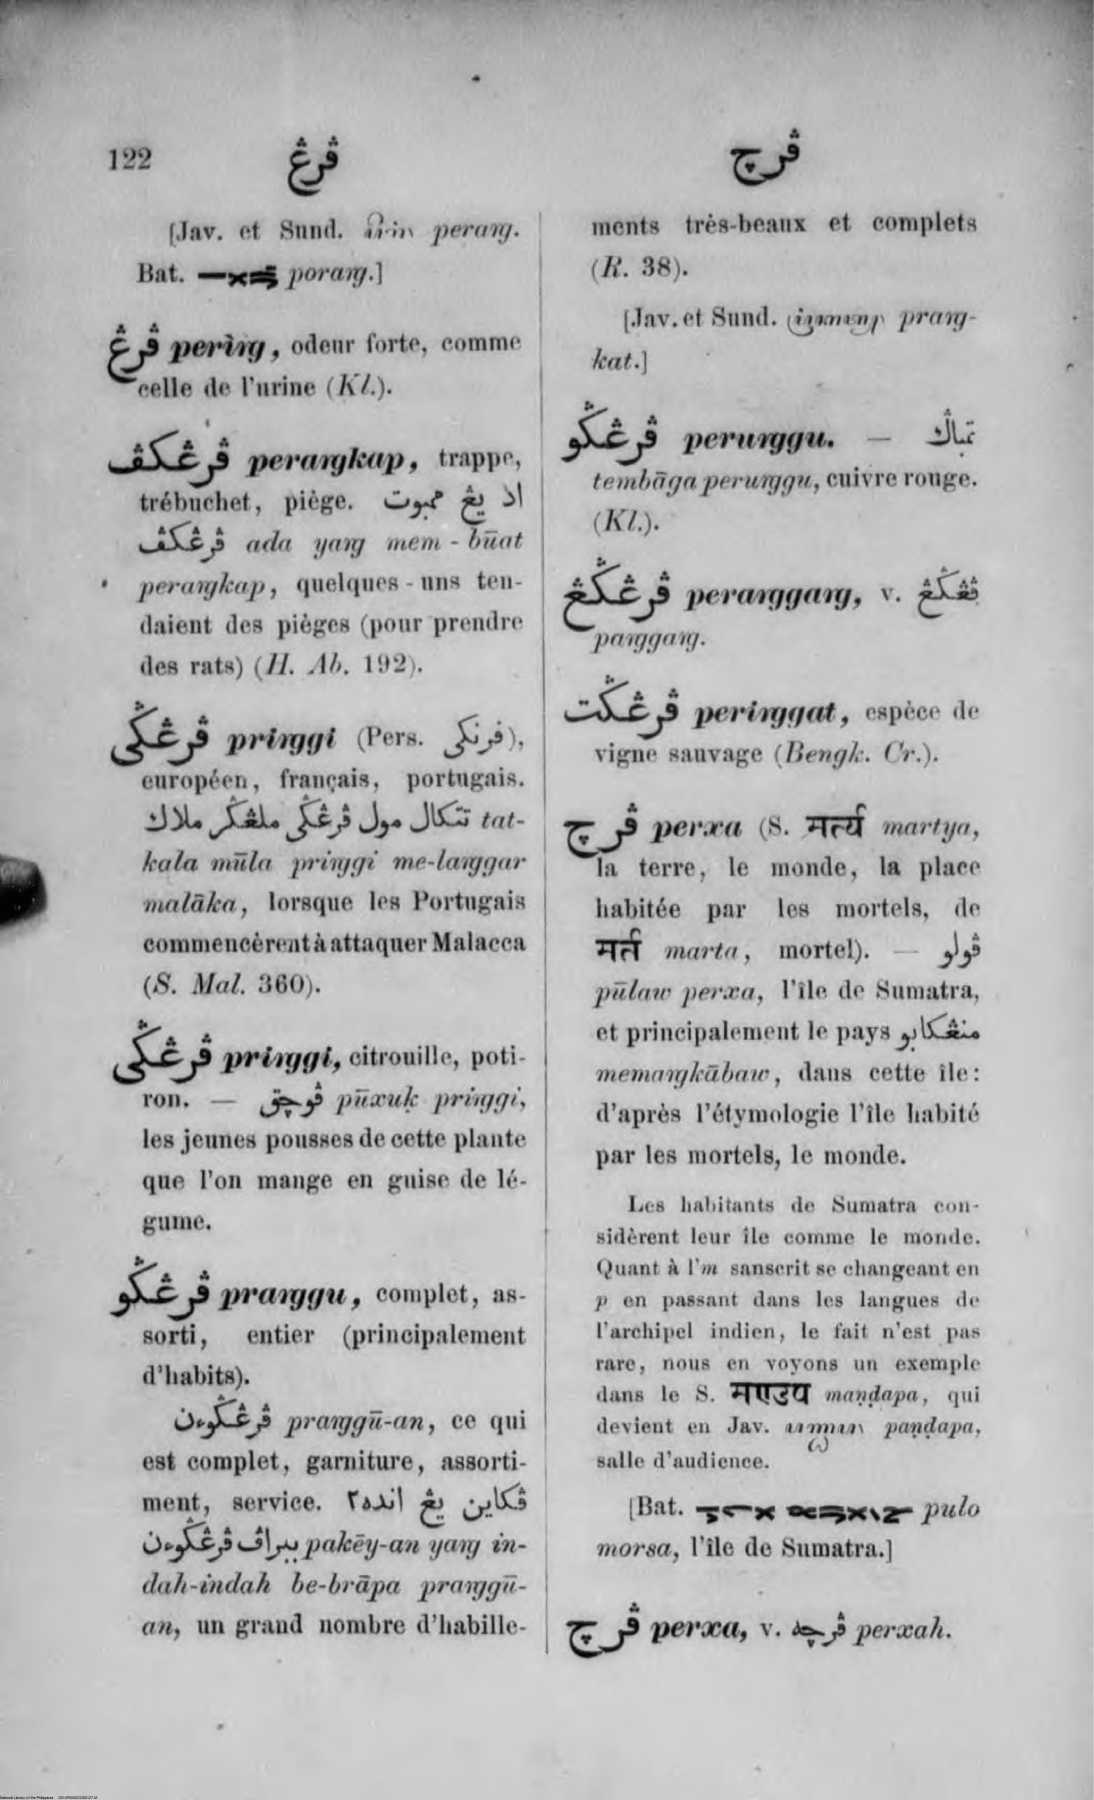 122
ڤرڠ
ڤرچ
[Jav. et Sund. peraŋ.
Bat. poraŋ.]
ڤرڠ periŋ, odeur forte, comme
celle de l'urine (Kl.).
ڤرڠكڤ peraŋkap, trappe,
trébuchet, piège. اد يڠ ممبوت
ڤرڠكڤ ada yaŋ mem-būat
peraŋkap, quelques-uns ten-
daient des pièges (pour prendre
des rats) (H. Ab. 192).
ڤرڠݢي priŋgi (Pers. فرنكى),
européen, français, portugais.
تتكال مول ڤرڠݢي ملڠݢر ملاك tat-
kala mūla priŋgi me-laŋgar
malāka, lorsque les Portugais
commencèrent à attaquer Malacca
(S. Mal. 360).
ڤرڠݢي priŋgi, citrouille, poti-
ron. — ڤوچق pūxuḳ priŋgi,
les jeunes pousses de cette plante
que l'on mange en guise de lé-
gume.
ڤرڠݢو praŋgu, complet, as-
sorti, entier (principalement
d'habits).
ڤرڠݢوءن praŋgū-an, ce qui
est complet, garniture, assorti-
ment, service. ڤكاين يڠ انده٢
ببراڤ ڤرڠݢوءن pakēy-an yaŋ in-
dah-indah be-brāpa praŋgū-
an, un grand nombre d'habille-
ments très-beaux et complets
(R. 38).
[Jav. et Sund. praŋ-
kat.]
ڤرڠݢو peruŋgu. — تمباݢ
tembāga peruŋgu, cuivre rouge.
(Kl.).
ڤرڠݢڠ peraŋgaŋ, v. ڤڠݢڠ
paŋgaŋ.
ڤرڠݢت periŋgat, espèce de
vigne sauvage (Bengk. Cr.).
ڤرچ perxa (S. मर्त्य martya,
la terre, le monde, la place
habitée par les mortels, de
मर्त marta, mortel). — ڤولو
pūlaw perxa, l'île de Sumatra,
et principalement le pays منڠكابو
memaŋkābaw, dans cette île:
d'après l'étymologie l'île habité
par les mortels, le monde.
Les habitants de Sumatra con-
sidèrent leur île comme le monde.
Quant à l'm sanscrit se changeant en
p en passant dans les langues de
l'archipel indien, le fait n'est pas
rare, nous en voyons un exemple
dans le S. मण्डप maṇḍapa, qui
devient en Jav. paṇḍapa,
salle d'audience.
[Bat. pulo
morsa, l'île de Sumatra.]
ڤرچ perxa, v. ڤرچه perxah.